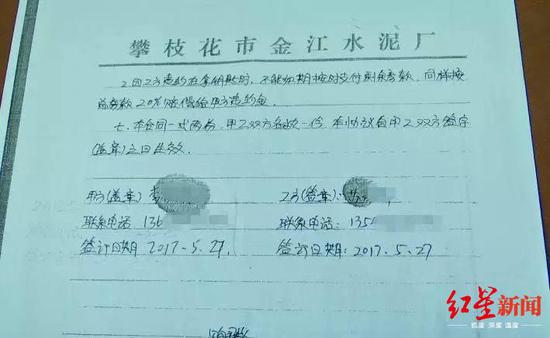 攀枝花市金江水泥厂
2.因乙方违约在拿钥匙时,不能如期按时支付剩余房款,同样按
总房款20%赔偿给甲方违约金
七、本合同一式两份,甲乙双方各执一份,本协议自甲乙双方签字
(盖章)之日生效.
甲方(签章) 李
乙方(签章):
联系电话 136
联系电话: 135
签订日期 2017.5.27.
签订日期: 2017.5.27
红星新闻
态度 深度 温度